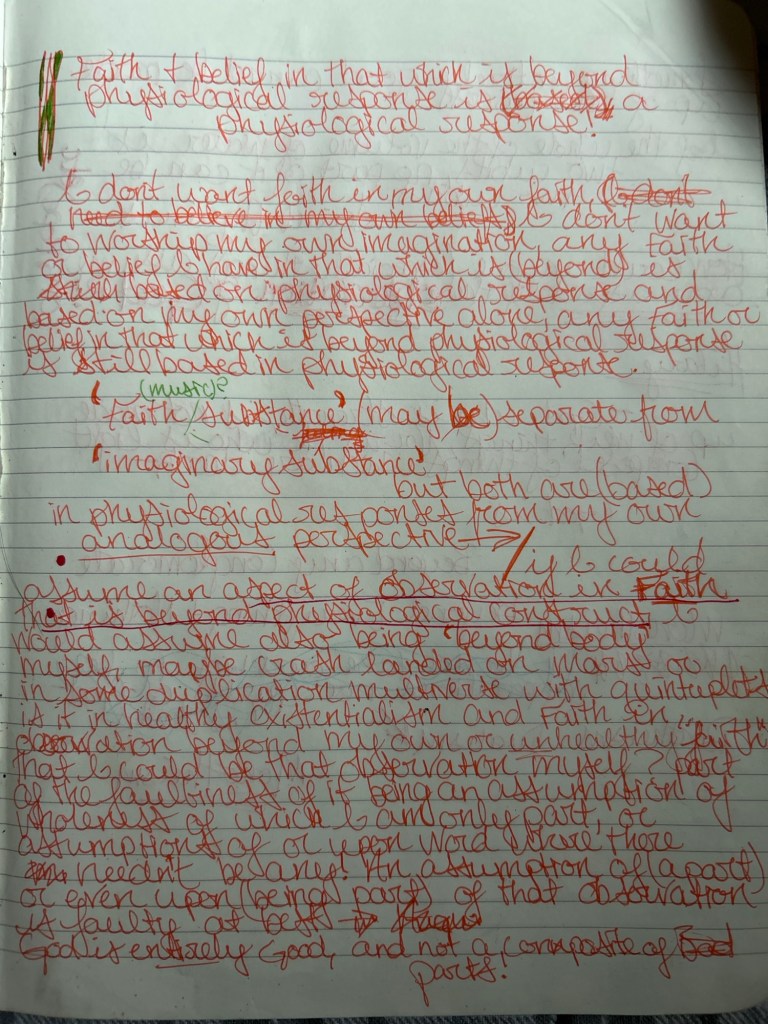 Faith + belief in that which is beyond
physiological response is (based) a
physiological response!
I dont want faith in my own faith (I dont
need to believe in my own beliefs) I dont want
to worship my own imagination, any faith
or belief I have in that which is (beyond) is
still based on physiological response and
based on my own perspective alone, any faith or
belief in that which is beyond physiological response
is still based in physiological response.
(music)?
'Faith/substance' (may be) separate from
'imaginary substance'
but both are (based)
in physiological responses from my own
analogous perspective →
/ if I could
assume an aspect of observation in Faith
that is beyond physiological construct I
would assume also being "beyond body"
myself, maybe crash landed on mars or
in some duplication multiverse with quintuplets
is it in healthy existentialism and Faith in
observation beyond my own or unhealthy "faith"
that I could be that observation myself? part
of the faultiness of it being an assumption of
wholeness of which I am only part, or
assumptions of or upon word where there
needn't be any! An assumption of (apart)
or even upon (being part) of that observation
is faulty at best →
God is entirely Good, and not a composite of
parts!